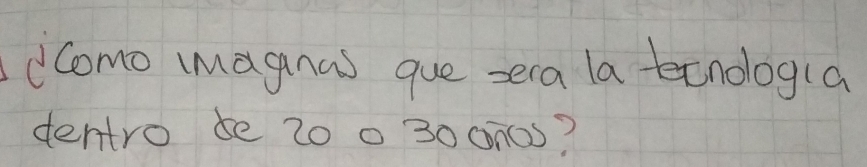 ¿Como imaginas que sera la tecnologia
dentro de 20 o 30 años?